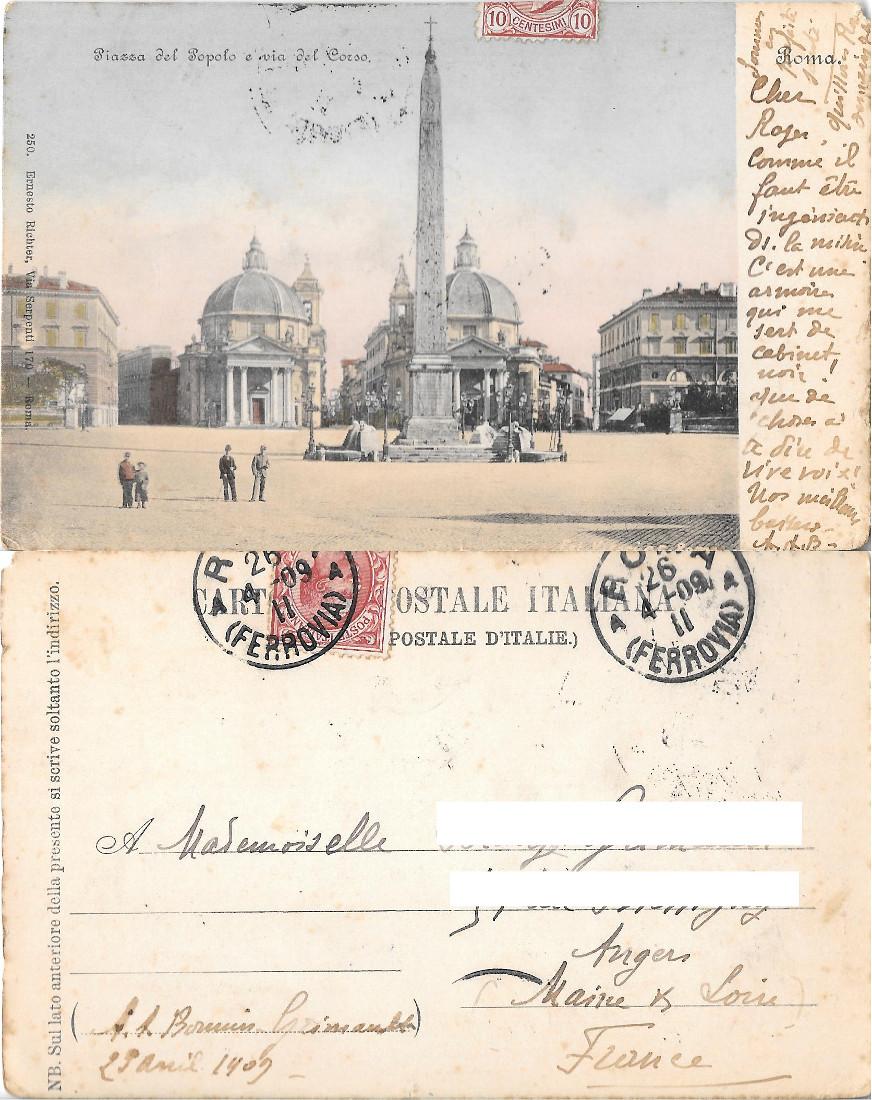 10 CENTESIMI 10
Piazza del Popolo e via del Corso.
Roma.
250. Ernesto Richter, Via Serpenti 170 — Roma
Cher
Roger
comme il
faut être
ingénieux
C'est une
armoire
qui me
sert de
cabinet
noir!
que de
choses à
te dire de
vive voix!
Nos meilleurs
baisers
CART OSTALE ITALIANA
POSTALE D'ITALIE.)
26
4-09
11
(FERROVIA)
26
4-09
11
(FERROVIA)
NB. Sul lato anteriore della presente si scrive soltanto l'indirizzo.
A Mademoiselle
Angers
Maine & Loire
France
(A. A. Bonnin Grimault)
25 avril 1909